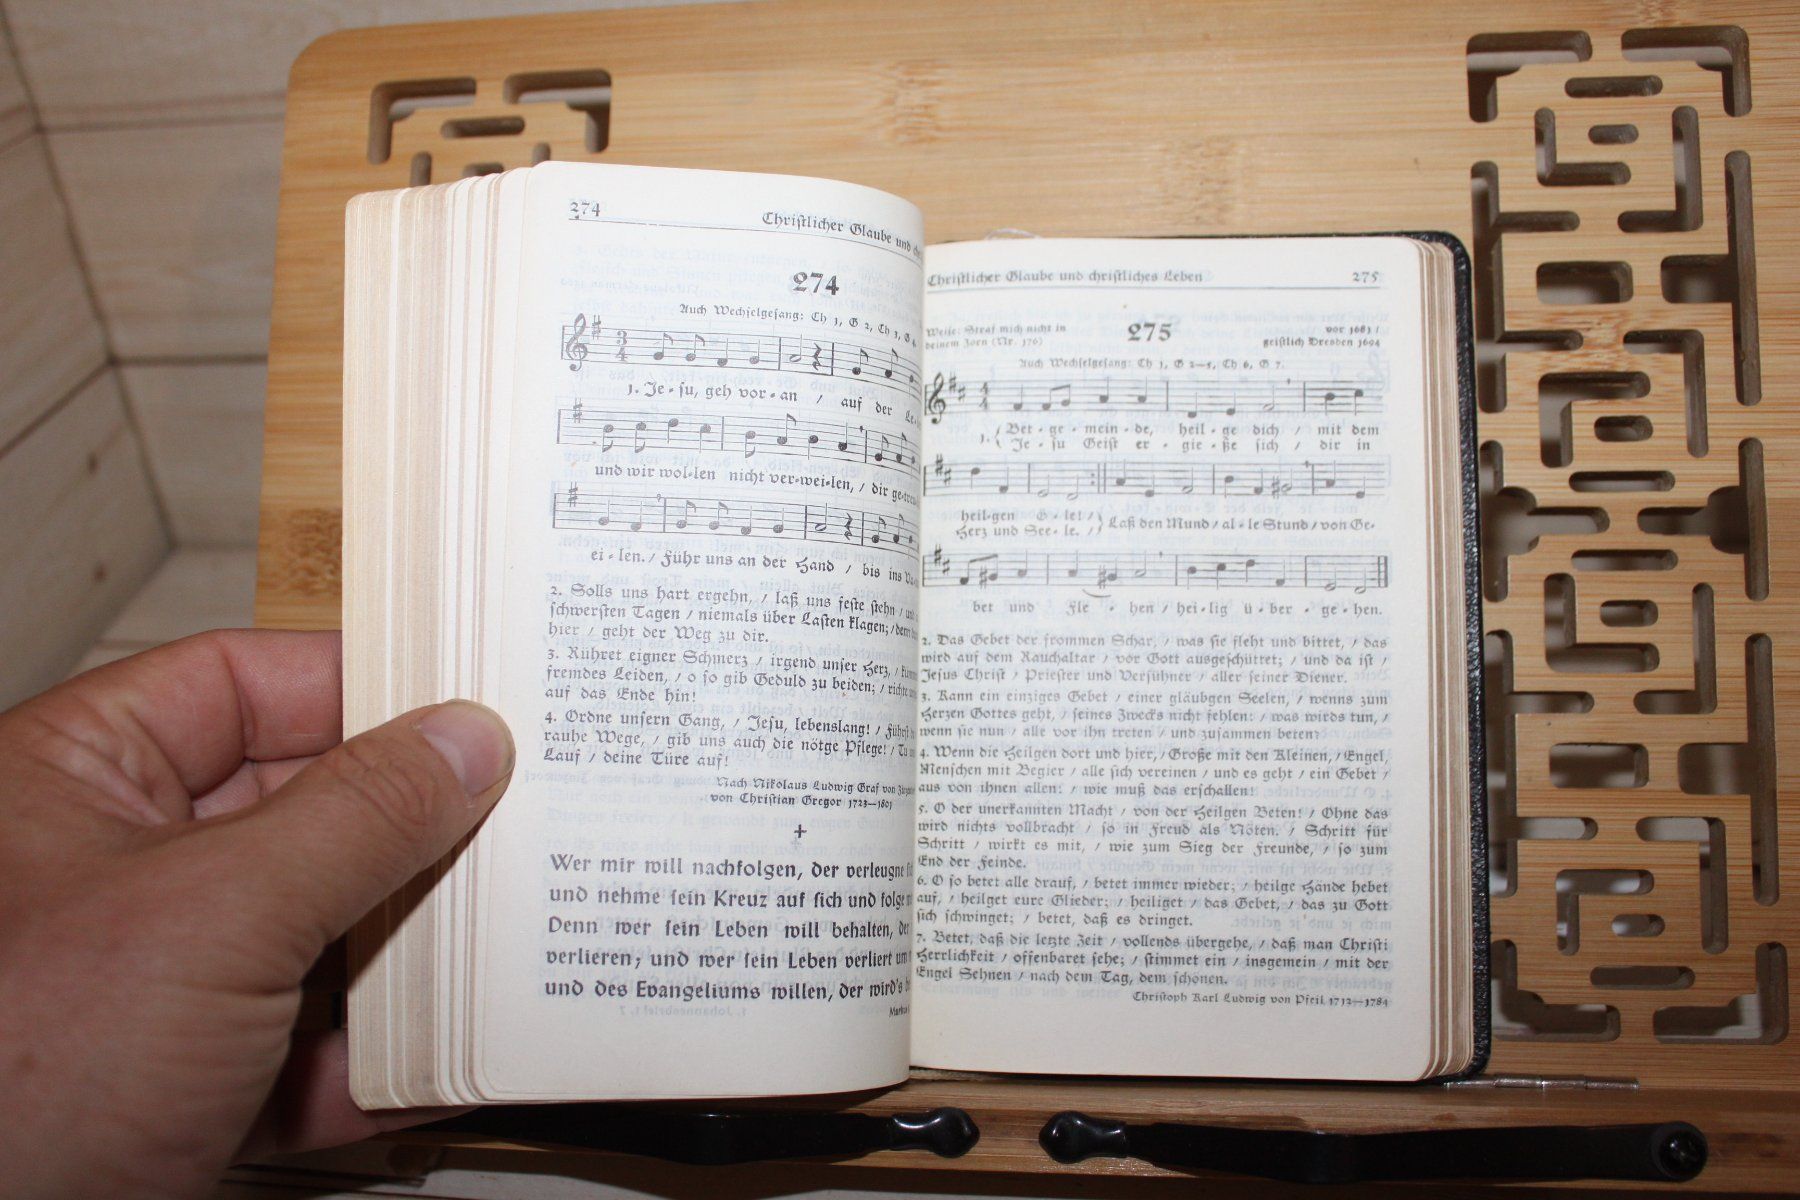 274
Christlicher Glaube und
274
Auch Wechselgesang: Ch 1, G 2, Ch 3, G 4.
1. Je-su, geh vor-an / auf der
und wir wol-len nicht ver-wei-len, / dir
ei-len. / Führ uns an der Hand / bis ins
2. Solls uns hart ergehn, / laß uns feste stehn /
schwersten Tagen / niemals über Lasten klagen; /
hier / geht der Weg zu dir.
3. Rühret eigner Schmerz / irgend unser Herz, /
fremdes Leiden, / o so gib Geduld zu beiden; / richte
auf das Ende hin!
4. Ordne unsern Gang, / Jesu, lebenslang! / Führst
rauhe Wege, / gib uns auch die nötge Pflege! / Tu
Lauf / deine Türe auf!
Nach Nikolaus Ludwig Graf von
von Christian Gregor 1723—1801
Wer mir will nachfolgen, der verleugne
und nehme sein Kreuz auf sich und folge
Denn wer sein Leben will behalten, der
verlieren; und wer sein Leben verliert um
und des Evangeliums willen, der wird's
Christlicher Glaube und christliches Leben 275
Weise: Straf mich nicht in
deinem Zorn (Nr. 176)
275
vor 1681 /
geistlich Dresden 1694
Auch Wechselgesang: Ch 1, G 2—5, Ch 6, G 7.
1. Bet-ge-mein-de, heil-ge dich / mit dem
Je-su Geist er-gie-ße sich / dir in
heil-gen Ö-le! /
Herz und See-le. /
Laß den Mund / al-le Stund / von Ge-
bet und Fle-hen / hei-lig ü-ber-ge-hen.
2. Das Gebet der frommen Schar, / was sie fleht und bittet, / das
wird auf dem Rauchaltar / vor Gott ausgeschüttet; / und da ist /
Jesus Christ / Priester und Versühner / aller seiner Diener.
3. Kann ein einziges Gebet / einer gläubgen Seelen, / wenns zum
Herzen Gottes geht, / seines Zwecks nicht fehlen: / was wirds tun, /
wenn sie nun / alle vor ihn treten / und zusammen beten?
4. Wenn die Heilgen dort und hier, / Große mit den Kleinen, / Engel,
Menschen mit Begier / alle sich vereinen / und es geht / ein Gebet /
aus von ihnen allen: / wie muß das erschallen!
5. O der unerkannten Macht / von der Heilgen Beten! / Ohne das
wird nichts vollbracht / so in Freud als Nöten. / Schritt für
Schritt / wirkt es mit, / wie zum Sieg der Freunde, / so zum
End der Feinde.
6. O so betet alle drauf, / betet immer wieder; / heilge Hände hebet
auf, / heilget eure Glieder; / heiliget / das Gebet, / das zu Gott
sich schwinget; / betet, daß es dringet.
7. Betet, daß die letzte Zeit / vollends übergehe, / daß man Christi
Herrlichkeit / offenbaret sehe; / stimmet ein / insgemein / mit der
Engel Sehnen / nach dem Tag, dem schönen.
Christoph Karl Ludwig von Pfeil 1712—1784